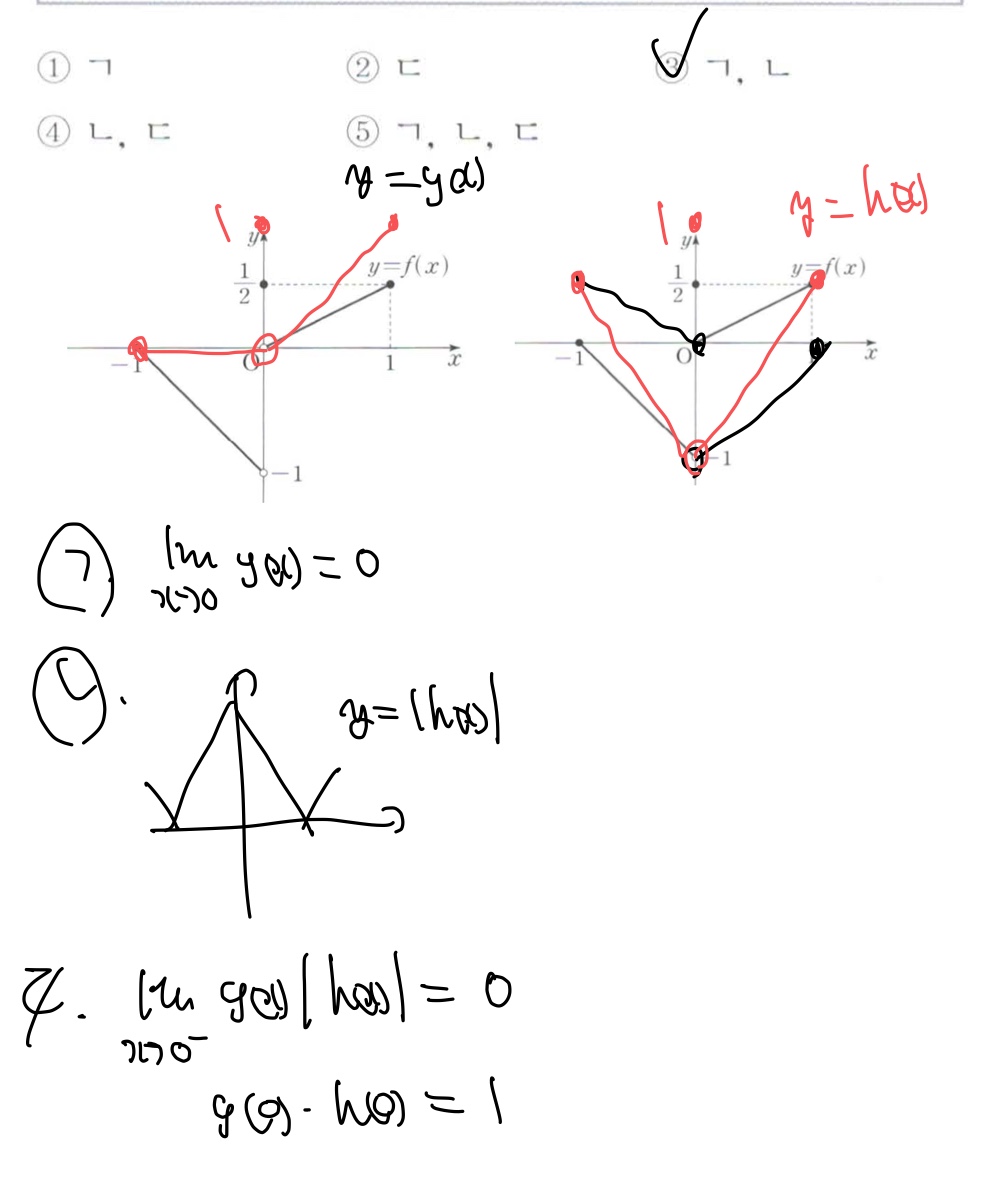 ① ㄱ ② ㄷ ③ ㄱ, ㄴ
④ ㄴ, ㄷ ⑤ ㄱ, ㄴ, ㄷ
y=g(x)
1 y 1 y y=h(x)
1/2 y=f(x) 1/2 y=f(x)
-1 O 1 x -1 O x
-1 -1
ㄱ lim x→0 g(x)=0
ㄴ. y=|h(x)|
ㄷ. lim x→0⁻ g(x)|h(x)|=0
g(0)·h(0)=1